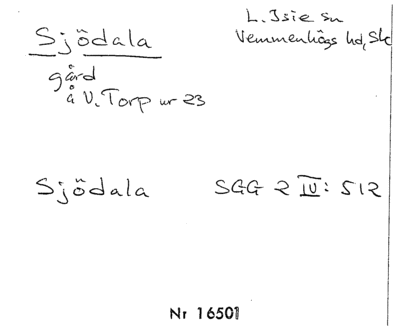 Sjödala
L. Isie sn
Vemmenhögs hd, Sk
gård
å V. Torp nr 23
Sjödala SGG 2 IV: 512
Nr 16501